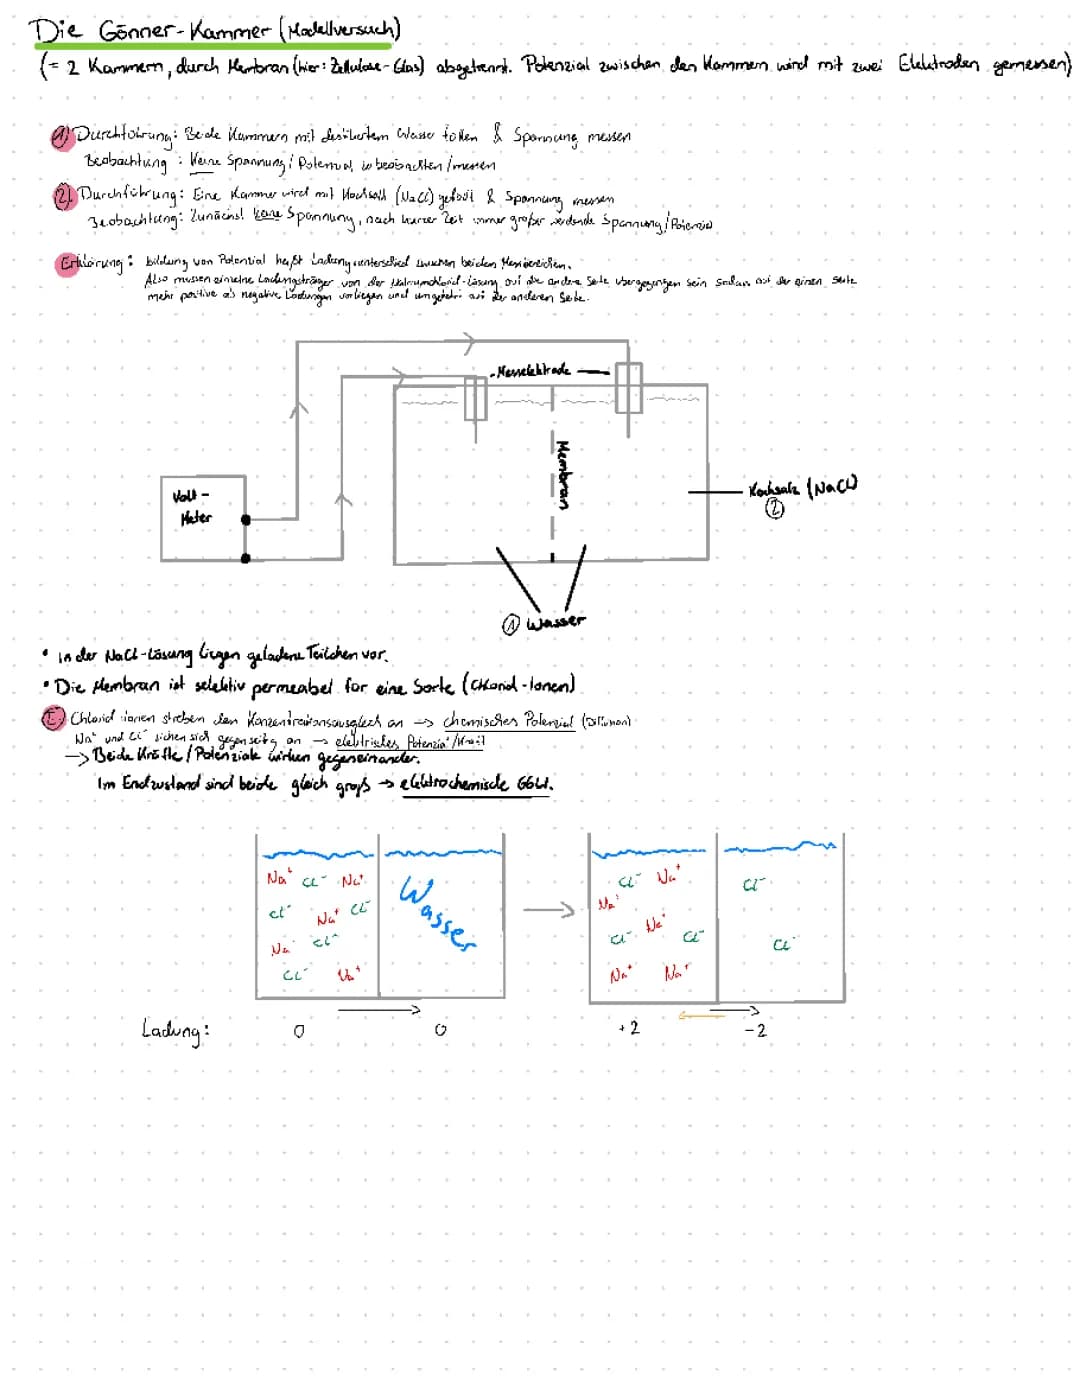 Die Gönner-Kammer (Modellversuch)
(= 2 Kammern, durch Membran (hier: Zellulose-Glas) abgetrennt. Potenzial zwischen den Kammern wird mit zwei Elektroden gemessen)
1) Durchführung: Beide Kammern mit destiliertem Wasser füllen & Spannung messen
Beobachtung: Keine Spannung / Potenzial zu beobachten / messen
2) Durchführung: Eine Kammer wird mit Kochsalz (NaCl) gefüllt & Spannung messen
Beobachtung: Zunächst keine Spannung, nach kurzer Zeit immer größer werdende Spannung / Potenzial
Erklärung: bildung von Potential heißt Ladungsunterschied zwischen beiden Messbereichen.
Also müssen einzelne Ladungsträger von der Natriumchlorid-Lösung auf die andere Seite übergegangen sein sodass auf der einen Seite
mehr positive als negative Ladungen vorliegen und umgekehrt auf der anderen Seite.
- Messelektrode
Volt-
Meter
Membran
Kochsalz (NaCl)
2
1 Wasser
• in der NaCl-Lösung liegen geladene Teilchen vor.
• Die Membran ist selektiv permeabel für eine Sorte (Chlorid-Ionen)
E) Chlorid ionen streben den Konzentrationsausgleich an → chemisches Potenzial (Diffusion)
Na⁺ und Cl⁻ ziehen sich gegenseitig an → elektrisches Potenzial/Kraft
→ Beide Kräfte / Potenziale wirken gegeneinander.
Im Endzustand sind beide gleich groß → elektrochemische GGW.
Na⁺ Cl⁻ Na⁺
Cl⁻ Na⁺ Cl⁻
Na Cl⁻
Cl⁻ Na⁺
Wasser
→
Cl⁻ Na⁺
Na⁺
Na⁺
Cl⁻ Cl⁻
Na⁺ Na⁺
Cl⁻
Cl⁻
Ladung: 0 → 0 +2 ← → -2